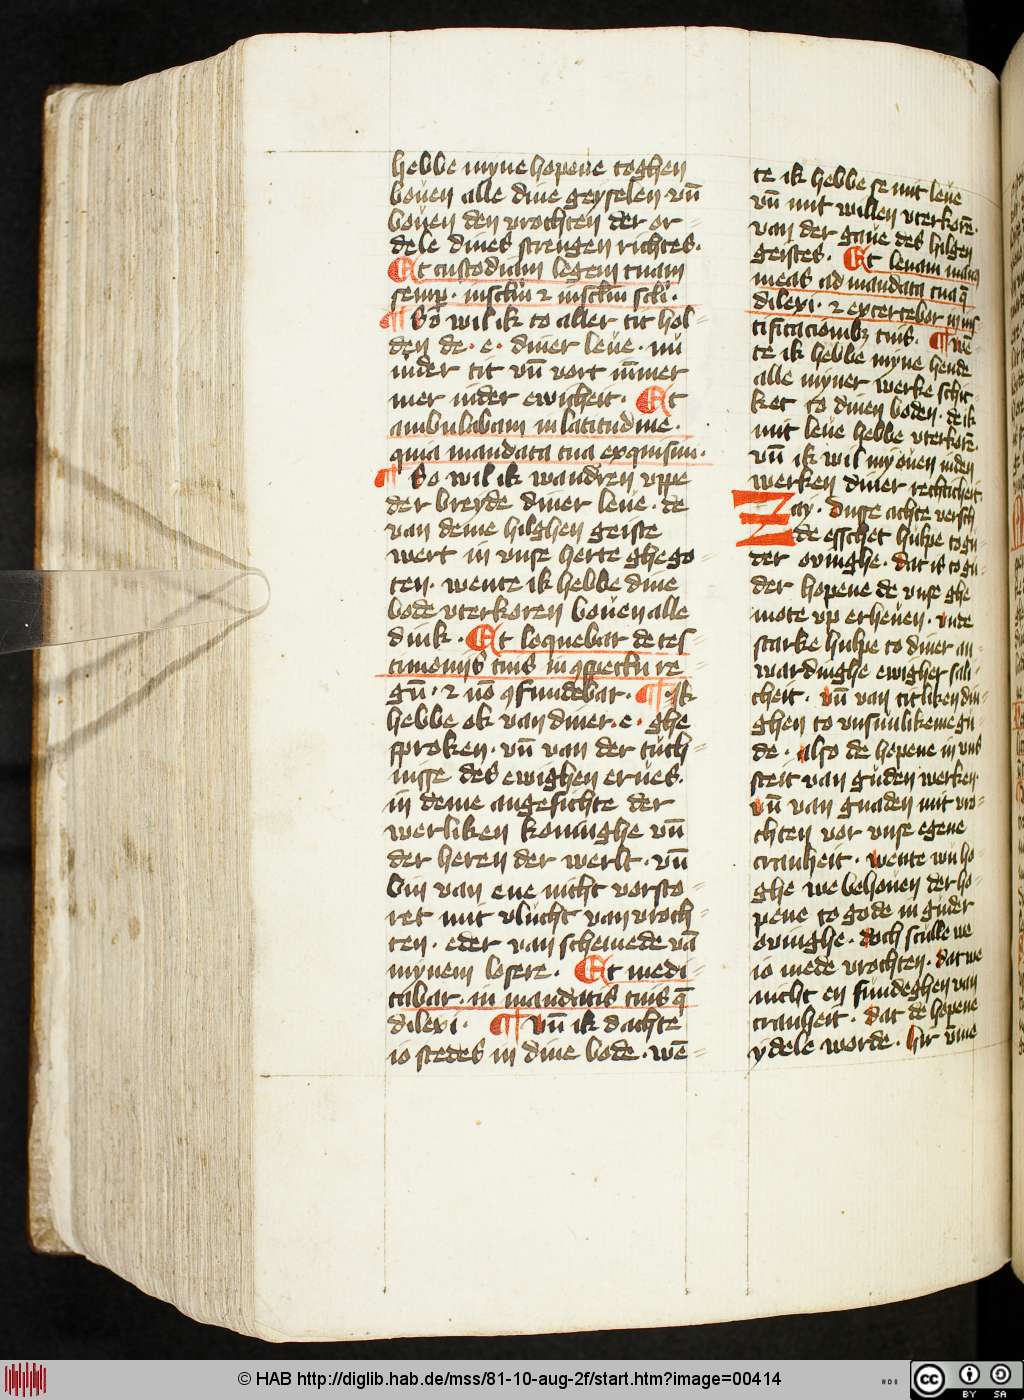 hebbe myne hopene toghen
bouen alle dine geyselen vn̄
bouen den vrochten der or
dele dines strengen richtes.
Et custodiam legem tuam
semp. inscl̄m ⁊ inscl̄m scl̄i.
¶ So wil ik to aller tit hol-
den de. e. diner leue. nu
inder tit vn̄ vort im̄mer
mer inder ewicheit. Et
ambulabam in latitudine.
quia mandata tua exquisiui.
¶ So wil ik wandren vppe
der breyde diner leue. de
van deme hilghen geiste
wert in vnse herte ghego-
ten. wente ik hebbe dine
bode vterkoren bouen alle
dink. Et loquebar de tes
timoniis tuis in ꝯspectu re
gū. ⁊ nō ꝯfundebar. ¶ Ik
hebbe ok van diner. e. ghe
sproken. vn̄ van der tuch-
nisse des ewighen erues.
in deme angesichte der
werliken koninghe vn̄
der heren der werlt. vn̄
bin van ene nicht vorsto-
ret mit vlucht van vroch-
ten. eder van schemede vā
mynem losere. Et medi-
tabar. in mandatis tuis q̄
dilexi. ¶ Vn̄ ik dachte
io stedes in dine bode. wē-
te ik hebbe se mit leue
vn̄ mit willen vterkorē.
van der gaue des hilgen
geistes. Et leuaui manꝯ
meas ad mandata tua q̄
dilexi. ⁊ exercebor in ius
tificacionibꝫ tuis. ¶ Wē
te ik hebbe myne hende
alle myner werke schic
ket to dinen boden. de ik
mit leue hebbe vterkorē.
vn̄ ik wil my ouen inden
werken diner rechticheit
Zay. dusse achte versch
de esschet hulpe togu
der ouinghe. dat is to gu-
der hopene de vnse ghe
mote vp erheuen. vnde
starke hulpe to diner an-
wardinghe ewigher sali-
cheit. vn̄ van titliken din-
ghen to vnsunlikeme gu-
de. also de hopene in vns
steit van guden werken.
vn̄ van gnaden mit vro-
chten vor vnse egene
cranheit. wente wu ho-
ghe we behouen der ho-
pene to gode in guder
ouinghe. doch sculle we
io mede vrochten. dat we
nicht en fundeghen van
cranheit. dat de hopene
ydele worde. hir vm̄e
© HAB http://diglib.hab.de/mss/81-10-aug-2f/start.htm?image=00414
cc BY SA